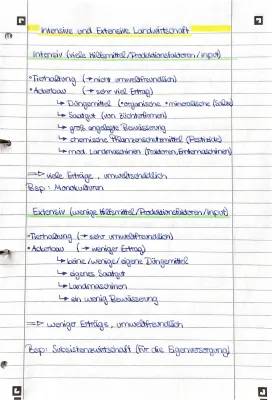 Intensive und Extensive Landwirtschaft
Intensiv (viele Hilfsmittel/Produktionsfaktoren/Input)
•Tierhaltung (→ nicht umweltfreundlich)
•Ackerbau (→ sehr viel Ertrag)
↳ Düngemittel (*organische *mineralische (Salze)
↳ Saatgut (von Züchterfirmen)
↳ groß angelegte Bewässerung
↳ chemische Pflanzenschutzmittel (Pestizide)
↳ mod. Landmaschinen (Traktoren, Erntemaschinen)
⇒ viele Erträge, umweltschädlich
Bsp: Monokulturen
Extensiv (wenige Hilfsmittel/Produktionsfaktoren/Input)
•Tierhaltung (→ sehr umweltfreundlich)
•Ackerbau (→ weniger Ertrag)
↳ keine/wenige/eigene Düngemittel
↳ eigenes Saatgut
↳ Landmaschinen
↳ ein wenig Bewässerung
⇒ weniger Erträge, umweltfreundlich
Bsp: Subsistenzwirtschaft (für die Eigenversorgung)